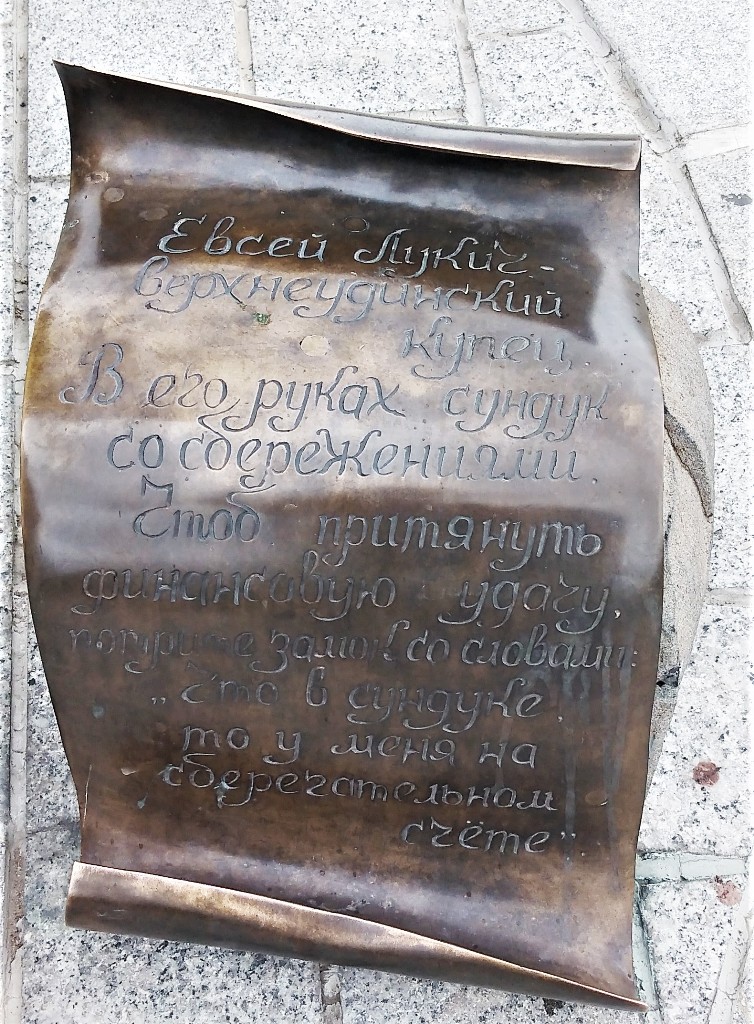 Евсей Лукич -
верхнеудинский
купец.
В его руках сундук
со сбережениями.
Чтоб притянуть
финансовую удачу,
потрите замок со словами:
„Что в сундуке,
то у меня на
сберегательном
счёте"